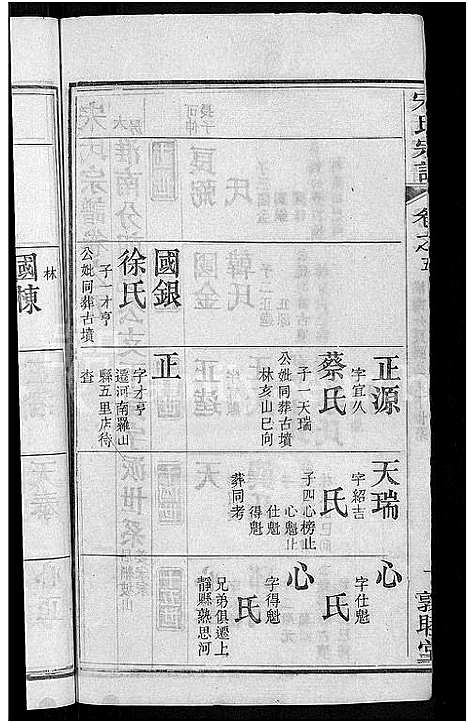 宋氏宗譜
卷之五
一
敦睦堂
正源
字宜久
蔡氏
子一天瑞
公妣同葬古墳
林亥山巳向
天瑞
字紹吉
氏
子四心榜止
心魁止
仕魁
得魁
葬同考
心
字仕魁
氏
心
字得魁
氏
兄弟俱遷上
靜縣熟思河
國銀
徐氏
子一才亨
公妣同葬古墳
正
字才亨
遷河南羅山
縣五里店待
查
林
國棟